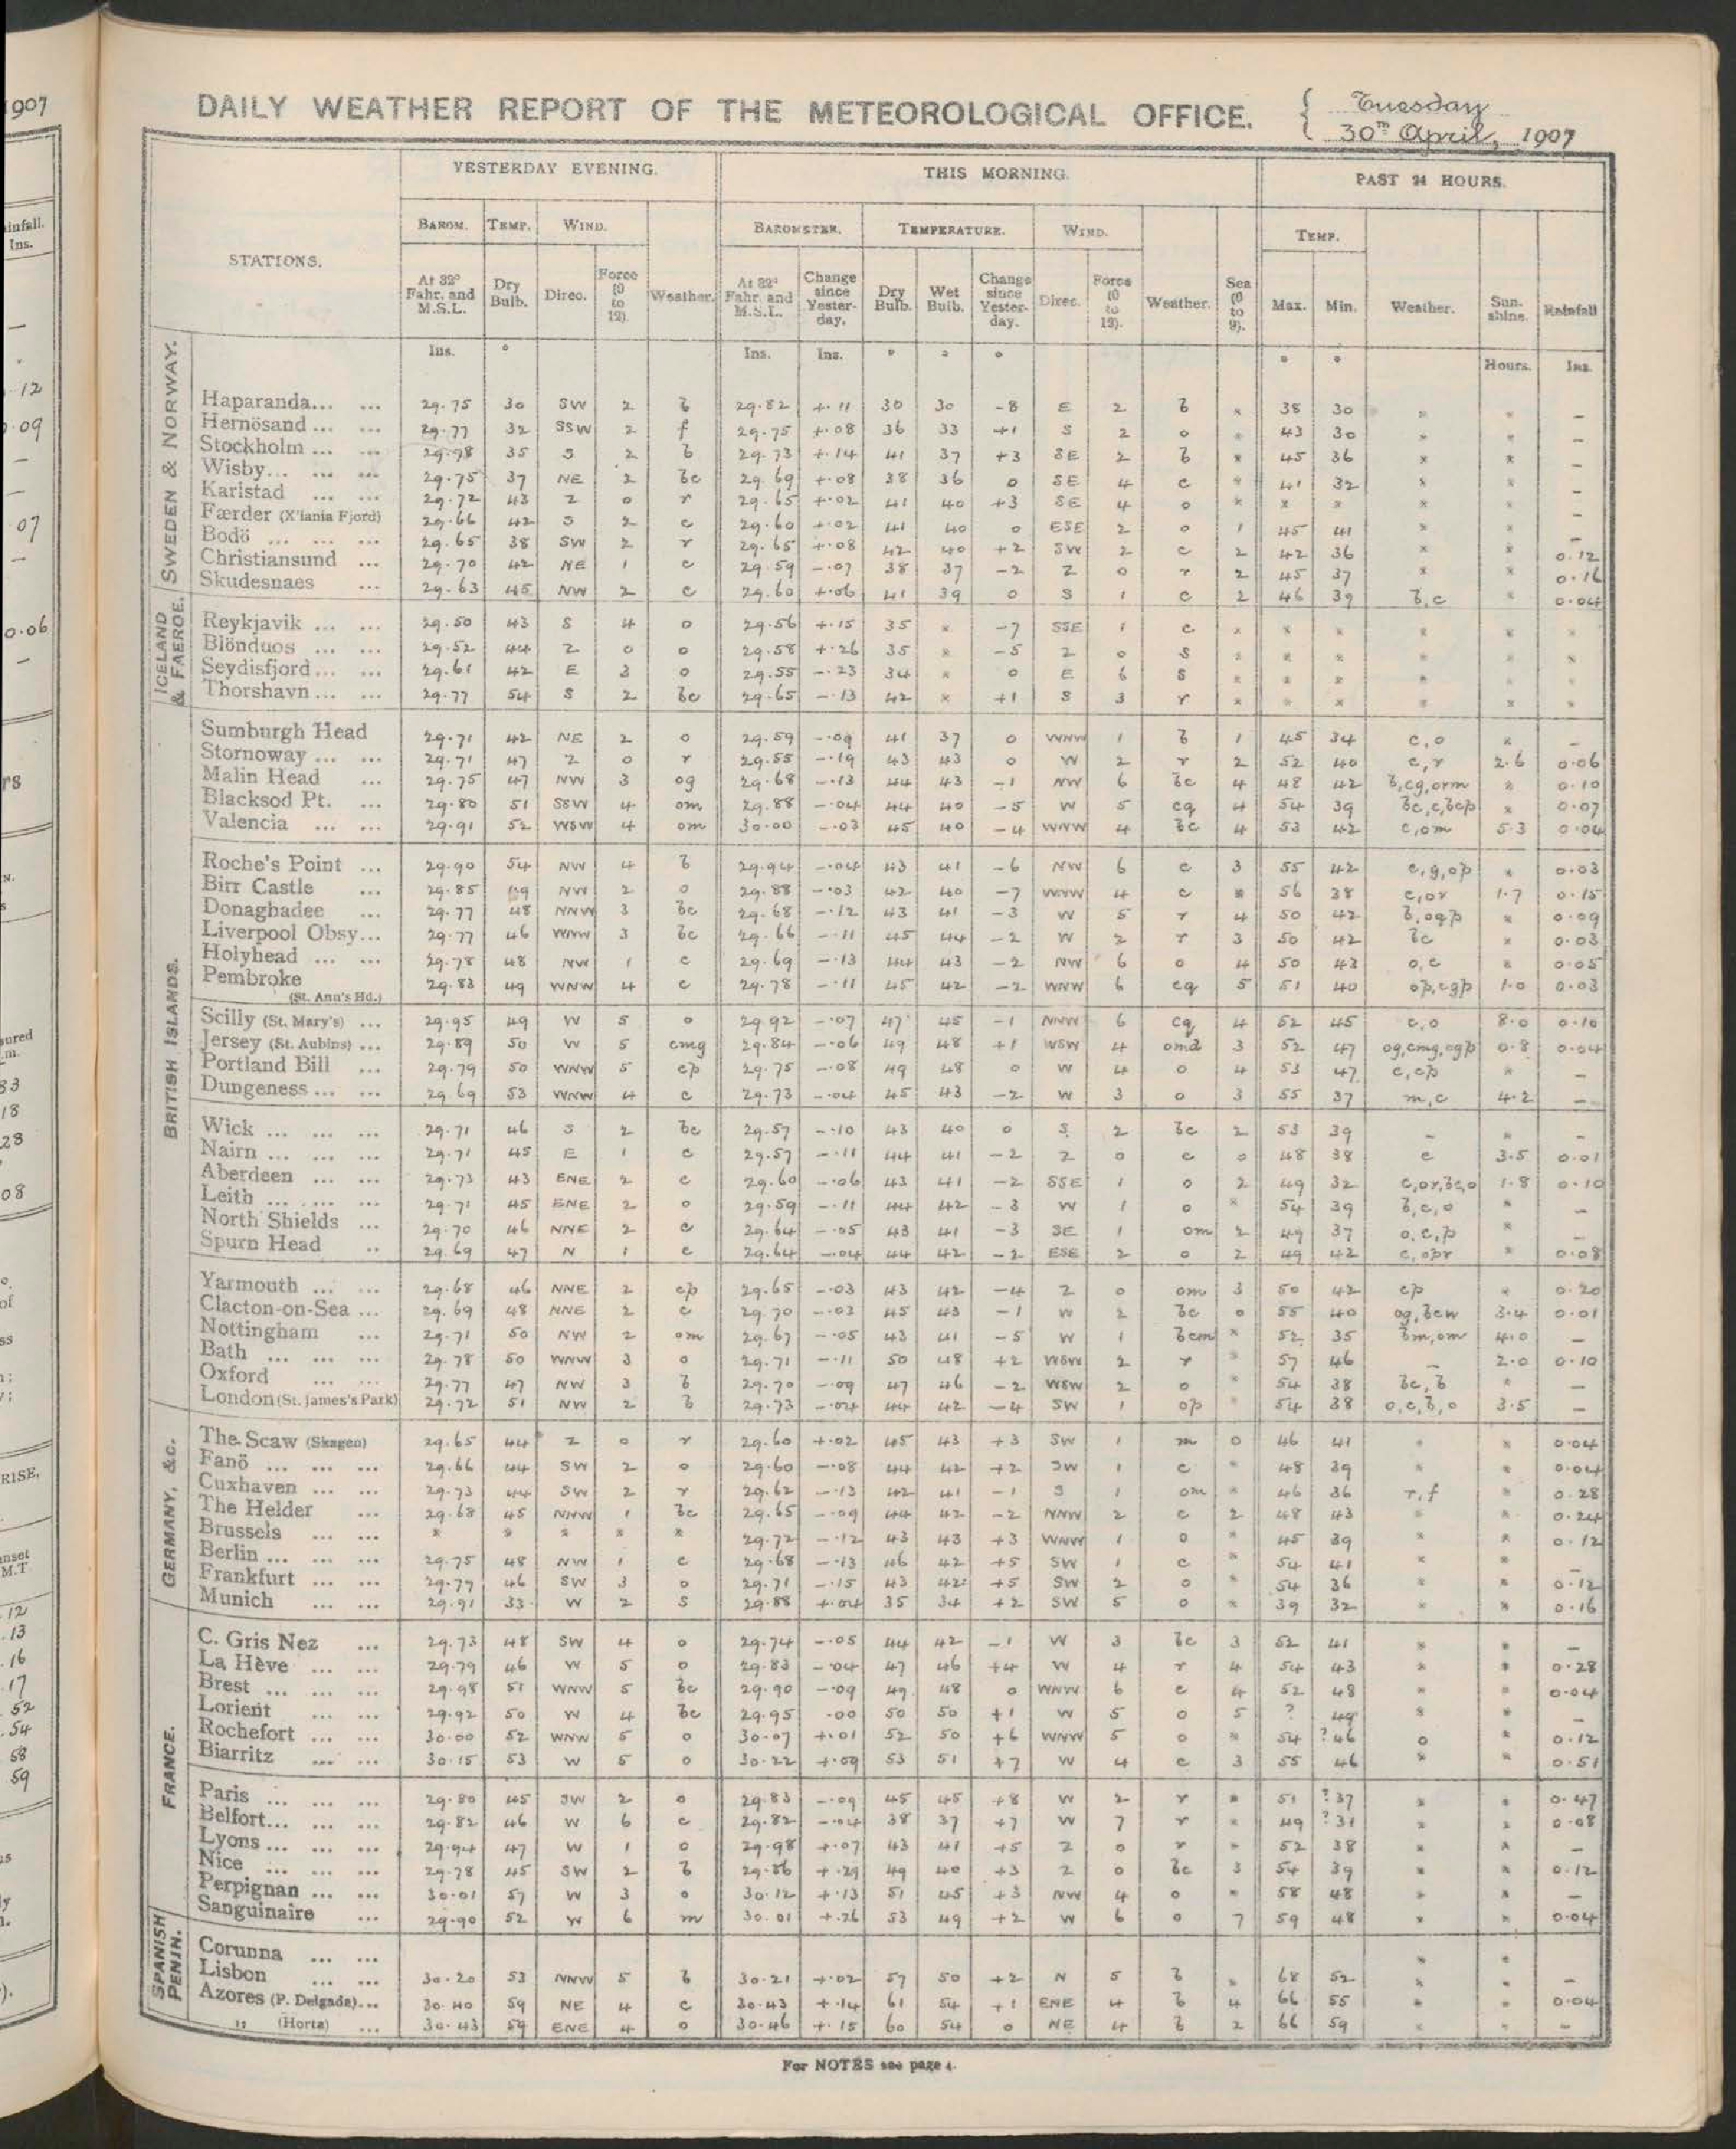 1907
infall.
Ins.
12
0.09
07
0.06
rs
DAILY WEATHER REPORT OF THE METEOROLOGICAL OFFICE. { Tuesday
30th April, 1907
YESTERDAY EVENING. THIS MORNING. PAST 24 HOURS.
STATIONS. BAROM. TEMP. WIND. Weather. BAROMETER. TEMPERATURE. WIND. Weather. Sea (0 to 9). TEMP. Weather. Sunshine. Rainfall
At 32° Fahr. and M.S.L. Dry Bulb. Direc. Force (0 to 12). At 32° Fahr. and M.S.L. Change since Yesterday. Dry Bulb. Wet Bulb. Change since Yesterday. Direc. Force (0 to 12). Max. Min.
Ins. ° Ins. Ins. ° ° ° ° ° Hours. Ins.
SWEDEN & NORWAY.
Haparanda... ... 29.75 30 SW 2 b 29.82 +.11 30 30 -8 E 2 b * 38 30 * * —
Hernösand ... ... 29.77 32 SSW 2 f 29.75 +.08 36 33 +1 S 2 o * 43 30 * * —
Stockholm ... ... 29.78 35 S 2 b 29.73 +.14 41 37 +3 SE 2 b * 45 36 * * —
Wisby... ... ... 29.75 37 NE 2 bc 29.69 +.08 38 36 0 SE 4 c * 41 32 * * —
Karlstad ... ... 29.72 43 Z 0 r 29.65 +.02 41 40 +3 SE 4 o * * * * * —
Færder (X'iania Fjord) 29.66 42 S 2 c 29.60 +.02 41 40 0 ESE 2 o 1 45 41 * * —
Bodö ... ... ... 29.65 38 SW 2 r 29.65 +.08 42 40 +2 SW 2 c 2 42 36 * * 0.12
Christiansund ... 29.70 42 NE 1 c 29.59 -.07 38 37 -2 Z 0 r 2 45 37 * * 0.16
Skudesnaes ... 29.63 45 NW 2 c 29.60 +.06 41 39 0 S 1 c 2 46 39 b,c * 0.04
ICELAND & FAEROE.
Reykjavik ... ... 29.50 43 S 4 o 29.56 +.15 35 * -7 SSE 1 c * * * * * *
Blönduos ... ... 29.52 44 Z 0 o 29.58 +.26 35 * -5 Z 0 s * * * * * *
Seydisfjord... ... 29.61 42 E 3 o 29.55 -.23 34 * 0 E 6 s * * * * * *
Thorshavn ... ... 29.77 54 S 2 bc 29.65 -.13 42 * +1 S 3 r * * * * * *
BRITISH ISLANDS.
Sumburgh Head 29.71 42 NE 2 o 29.59 -.09 41 37 0 WNW 1 b 1 45 34 c,o * —
Stornoway ... ... 29.71 47 Z 0 r 29.55 -.19 43 43 0 W 2 r 2 52 40 c,r 2.6 0.06
Malin Head ... 29.75 47 NW 3 og 29.68 -.13 44 43 -1 NW 6 bc 4 48 42 b,cg,orm * 0.10
Blacksod Pt. ... 29.80 51 SSW 4 om 29.88 -.04 44 40 -5 W 5 cq 4 54 39 bc,c,bcp * 0.07
Valencia ... ... 29.91 52 WSW 4 om 30.00 -.03 45 40 -4 WNW 4 bc 4 53 42 c,om 5.3 0.04
Roche's Point ... 29.90 54 NW 4 b 29.94 -.04 43 41 -6 NW 6 c 3 55 42 c,g,op * 0.03
Birr Castle ... 29.85 49 NW 2 o 29.88 -.03 42 40 -7 WNW 4 c * 56 38 c,or 1.7 0.15
Donaghadee ... 29.77 48 NNW 3 bc 29.68 -.12 43 41 -3 W 5 r 4 50 42 b,oqp * 0.09
Liverpool Obsy... 29.77 46 WNW 3 bc 29.66 -.11 45 44 -2 W 2 r 3 50 42 bc * 0.03
Holyhead ... ... 29.78 48 NW 1 c 29.69 -.13 44 43 -2 NW 6 o 4 50 43 o,c * 0.05
Pembroke 29.83 49 WNW 4 c 29.78 -.11 45 42 -2 WNW 6 cq 5 51 40 op,cgp 1.0 0.03
(St. Ann's Hd.)
Scilly (St. Mary's) ... 29.95 49 W 5 o 29.92 -.07 47 45 -1 NNW 6 cq 4 52 45 c,o 8.0 0.10
Jersey (St. Aubins) ... 29.89 50 W 5 cmg 29.84 -.06 49 48 +1 WSW 4 omd 3 52 47 og,cmg,cgp 0.8 0.04
Portland Bill ... 29.79 50 WNW 5 cp 29.75 -.08 49 48 0 W 4 o 4 53 47 c,cp * —
Dungeness ... ... 29.69 53 WNW 4 c 29.73 -.04 45 43 -2 W 3 o 3 55 37 m,c 4.2 —
Wick ... ... ... 29.71 46 S 2 bc 29.57 -.10 43 40 0 S 2 bc 2 53 39 — * —
Nairn ... ... ... 29.71 45 E 1 c 29.57 -.11 44 41 -2 Z 0 c 0 48 38 c 3.5 0.01
Aberdeen ... ... 29.73 43 ENE 2 c 29.60 -.06 43 41 -2 SSE 1 o 2 49 32 c,or,bc,o 1.8 0.10
Leith ... ... ... 29.71 45 ENE 2 o 29.59 -.11 44 42 -3 W 1 o * 54 39 b,c,o * —
North Shields ... 29.70 46 NNE 2 c 29.64 -.05 43 41 -3 SE 1 om 2 49 37 o,c,p * —
Spurn Head .. 29.69 47 N 1 c 29.64 -.04 44 42 -2 ESE 2 o 2 49 42 c,opr * 0.08
Yarmouth ... ... 29.68 46 NNE 2 cp 29.65 -.03 43 42 -4 Z 0 om 3 50 42 cp * 0.20
Clacton-on-Sea ... 29.69 48 NNE 2 c 29.70 -.03 45 43 -1 W 2 bc 0 55 40 og,bcw 3.4 0.01
Nottingham ... 29.71 50 NW 2 om 29.67 -.05 43 41 -5 W 1 bcm * 52 35 bm,om 4.0 —
Bath ... ... ... 29.78 50 WNW 3 o 29.71 -.11 50 48 +2 WSW 2 r * 57 46 — 2.0 0.10
Oxford ... ... 29.77 47 NW 3 b 29.70 -.09 47 46 -2 WSW 2 o * 54 38 bc,b * —
London (St. James's Park) 29.72 51 NW 2 b 29.73 -.04 44 42 -4 SW 1 op * 54 38 o,c,b,o 3.5 —
GERMANY, &c.
The Scaw (Skagen) 29.65 44 Z 0 r 29.60 +.02 45 43 +3 SW 1 m 0 46 41 * * 0.04
Fanö ... ... ... 29.66 44 SW 2 o 29.60 -.08 44 42 +2 SW 1 c * 48 39 * * 0.04
Cuxhaven ... ... 29.73 44 SW 2 r 29.62 -.13 42 41 -1 S 1 om * 46 36 r,f * 0.28
The Helder ... 29.68 45 NNW 1 bc 29.65 -.09 44 42 -2 NNW 2 c 2 48 43 * * 0.24
Brussels ... ... * * * * * 29.72 -.12 43 43 +3 WNW 1 o * 45 39 * * 0.12
Berlin ... ... ... 29.75 48 NW 1 c 29.68 -.13 46 42 +5 SW 1 c * 54 41 * * —
Frankfurt ... ... 29.77 46 SW 3 o 29.71 -.15 43 42 +5 SW 2 o * 54 36 * * 0.12
Munich ... ... 29.91 33 W 2 s 29.88 +.04 35 34 +2 SW 5 o * 39 32 * * 0.16
FRANCE.
C. Gris Nez ... 29.73 48 SW 4 o 29.74 -.05 44 42 -1 W 3 bc 3 52 41 * * —
La Hève ... ... 29.79 46 W 5 o 29.83 -.04 47 46 +4 W 4 r 4 54 43 * * 0.28
Brest ... ... ... 29.98 51 WNW 5 bc 29.90 -.09 49 48 0 WNW 6 c 4 52 48 * * 0.04
Lorient ... ... 29.92 50 W 4 bc 29.95 .00 50 50 +1 W 5 o 5 ? 49 * * —
Rochefort ... ... 30.00 52 WNW 5 o 30.07 +.01 52 50 +6 WNW 5 o * 54 ?46 o * 0.12
Biarritz ... ... 30.15 53 W 5 o 30.22 +.09 53 51 +7 W 4 c 3 55 46 * * 0.51
Paris ... ... ... 29.80 45 SW 2 o 29.83 -.09 45 45 +8 W 2 r * 51 ?37 * * 0.47
Belfort... ... ... 29.82 46 W 6 c 29.82 -.04 38 37 +7 W 7 r * 49 ?31 * * 0.08
Lyons ... ... ... 29.94 47 W 1 o 29.98 +.07 43 41 +5 Z 0 r * 52 38 * * —
Nice ... ... ... 29.78 45 SW 2 b 29.86 +.29 49 40 +3 Z 0 bc 3 54 39 * * 0.12
Perpignan ... ... 30.01 57 W 3 o 30.12 +.13 51 45 +3 NW 4 o * 58 48 * * —
Sanguinaire ... 29.90 52 W 6 m 30.01 +.26 53 49 +2 W 6 o 7 59 48 * * 0.04
SPANISH PENIN.
Corunna ... ... * *
Lisbon ... ... 30.20 53 NNW 5 b 30.21 +.02 57 50 +2 N 5 b * 68 52 * * —
Azores (P. Delgada)... 30.40 59 NE 4 c 30.43 +.14 61 54 +1 ENE 4 b 4 66 55 * * 0.04
" (Horta) ... 30.43 59 ENE 4 o 30.46 +.15 60 54 0 NE 4 b 2 66 59 * * —
For NOTES see page 4.